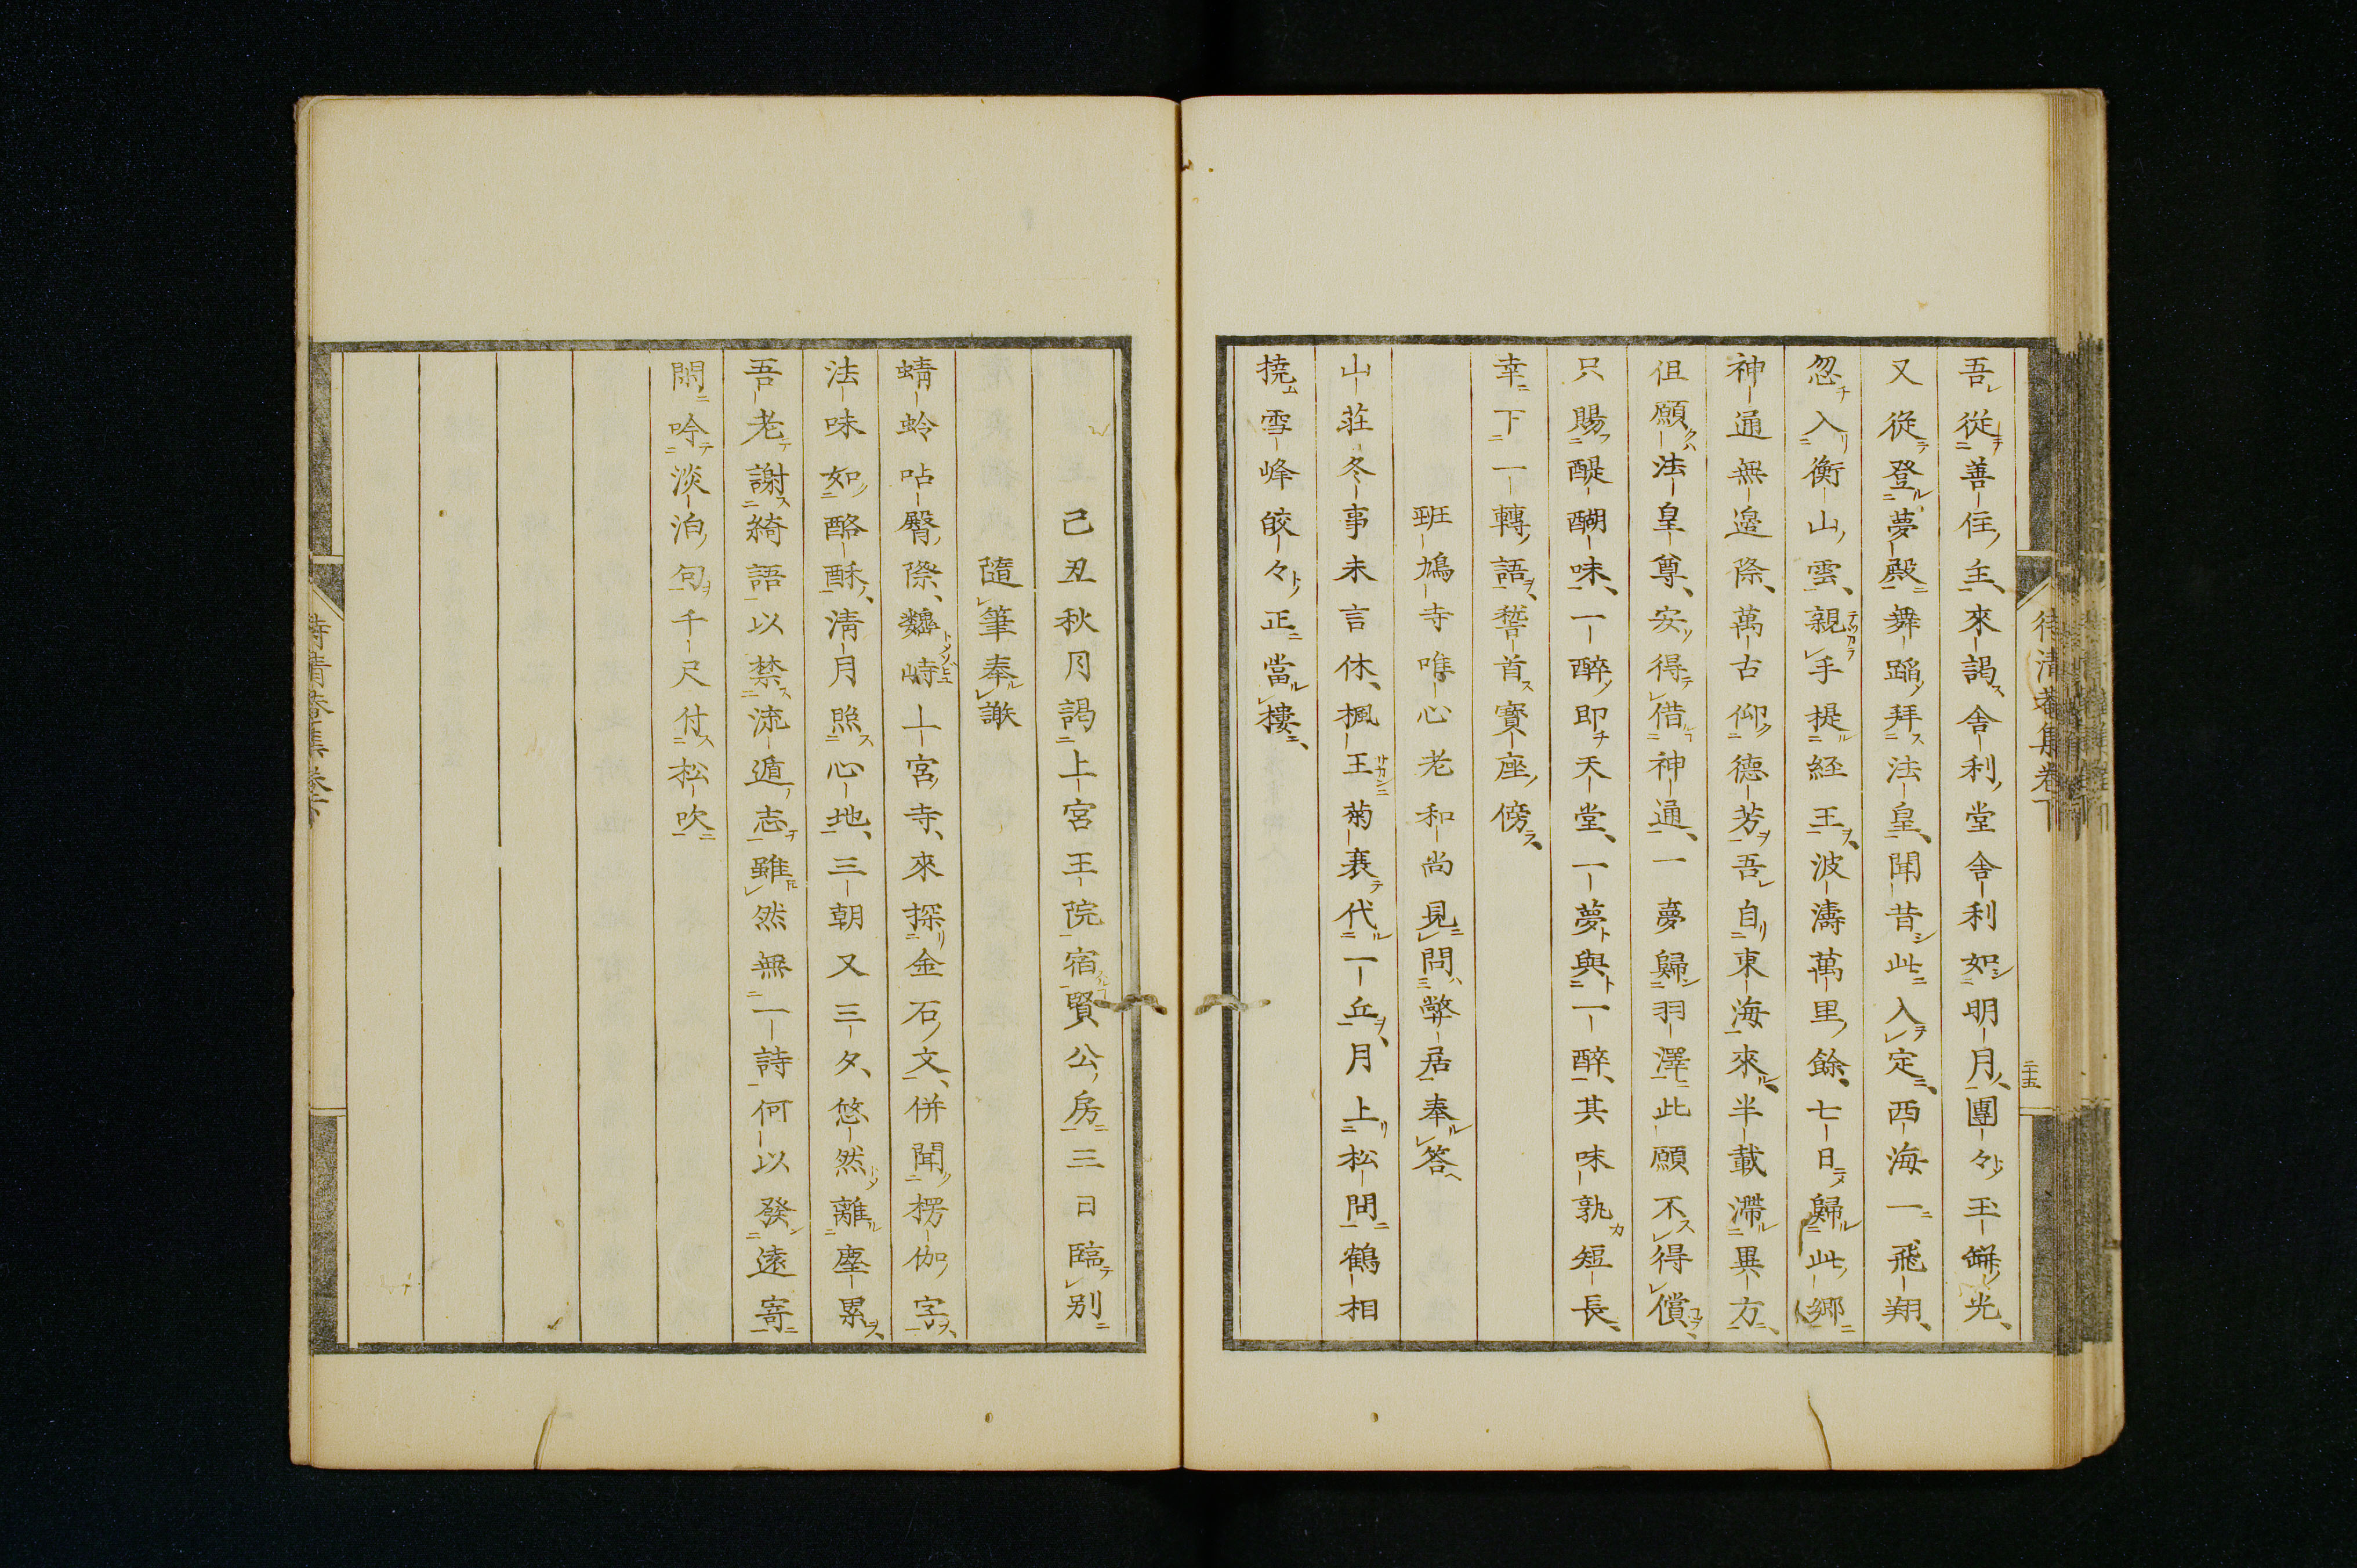 待清菴集卷下
二十五
吾從善住主來謁舍利堂舍利如明月團々玉缾光
又從登夢殿舞蹈拜法皇聞昔此入定西海一飛翔
忽入衡山雲親手提經王波濤萬里餘七日歸此鄉
神通無邊際萬古仰德芳吾自東海來半載滯異方
但願法皇尊安得借神通一夢歸羽澤此願不得償
只賜醍醐味一醉即天堂一夢與一醉其味孰短長
幸下一轉語稽首寶座傍
班鳩寺唯心老和尚見問弊居奉答
山莊冬事未言休楓王菊衰代一丘月上松間鶴相
撓雪峰皎々正當樓
己丑秋月謁上宮王院宿賢公房三日臨別
隨筆奉謝
蜻蛉呫臀際魏峙上宮寺來探金石文併聞楞伽字
法味如酪酥清月照心地三朝又三夕悠然離塵累
吾老謝綺語以禁流遁志雖然無一詩何以發遠寄
閑吟淡泊句千尺付松吹